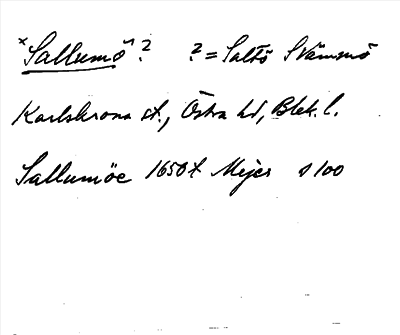 *Sallumö? ? = Saltö Stämmö
Karlskrona st., Östra hd, Blek. l.
Sallumöe 1650t Mejer s 100